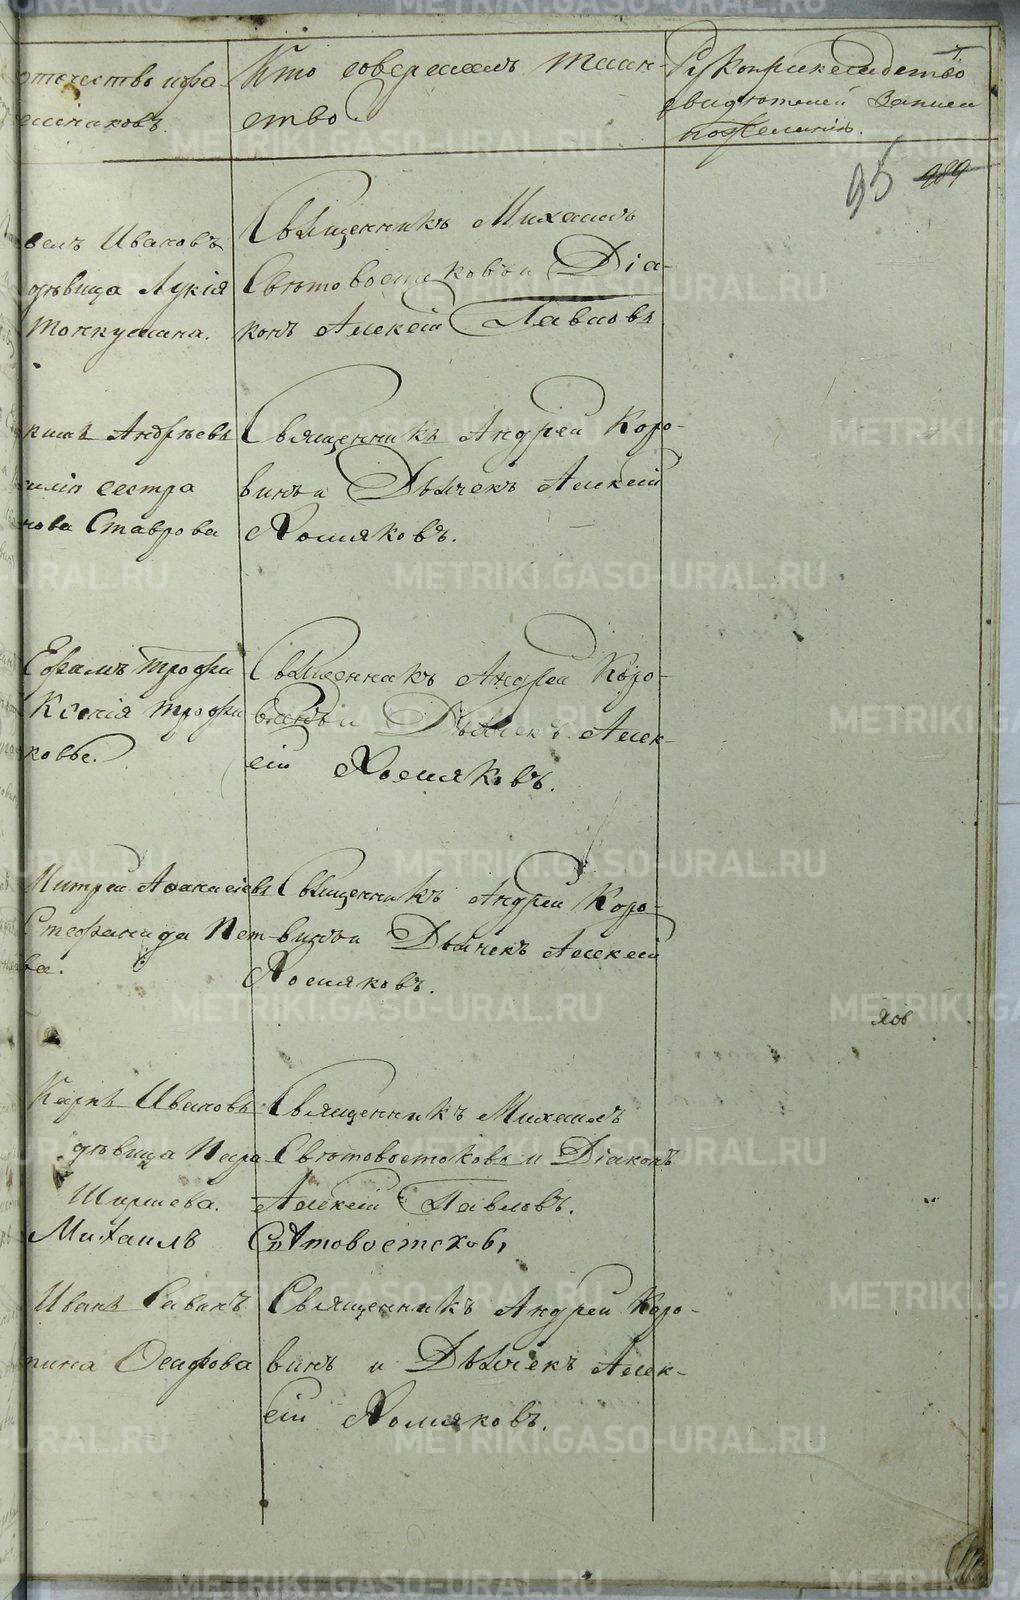 отчество и фа-
Кто совершалъ таин-
ство.
Рукоприкладство
свидѣтелей записи
по желанію.
95
989
велъ Ивановъ
дѣвица Лукія
Священникъ Михаилъ
Свѣтовостоковъ и Діа-
конъ Алексій Павловъ
Андрѣевъ
сестра
нова Ставрова
Священникъ Андрей Коро-
винъ и Дьячекъ Алексій
Хомяковъ.
Ефимъ Трофи
Ксенія Трофи
кове.
Священникъ Андрей Коро-
винъ и Дьячекъ Алек-
сій Хомяковъ.
Митрей Афанасіевъ
Стефанида Пет-
ва.
Священникъ Андрей Коро-
винъ и Дьячекъ Алексій
Хомяковъ.
Карпъ Ивановъ
дѣвица Пара
Ширяева.
Священникъ Михаилъ
Свѣтовостоковъ и Діаконъ
Алексій Павловъ.
Михаилъ Свѣтовостоковъ
Иванъ Савинъ
Осипова
Священникъ Андрей Коро-
винъ и Дьячекъ Алек-
сій Хомяковъ.
METRIKI.GASO-URAL.RU